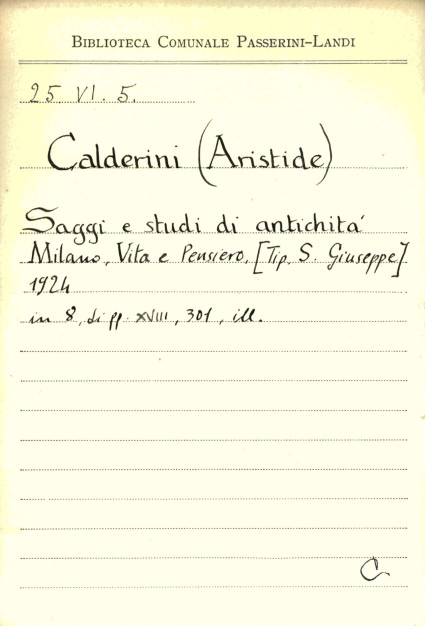 BIBLIOTECA COMUNALE PASSERINI-LANDI
25 VI. 5.
Calderini (Aristide)
Saggi e studi di antichità
Milano, Vita e Pensiero, [Tip. S. Giuseppe]
1924
in 8, di pp. XVIII, 301, ill.
C